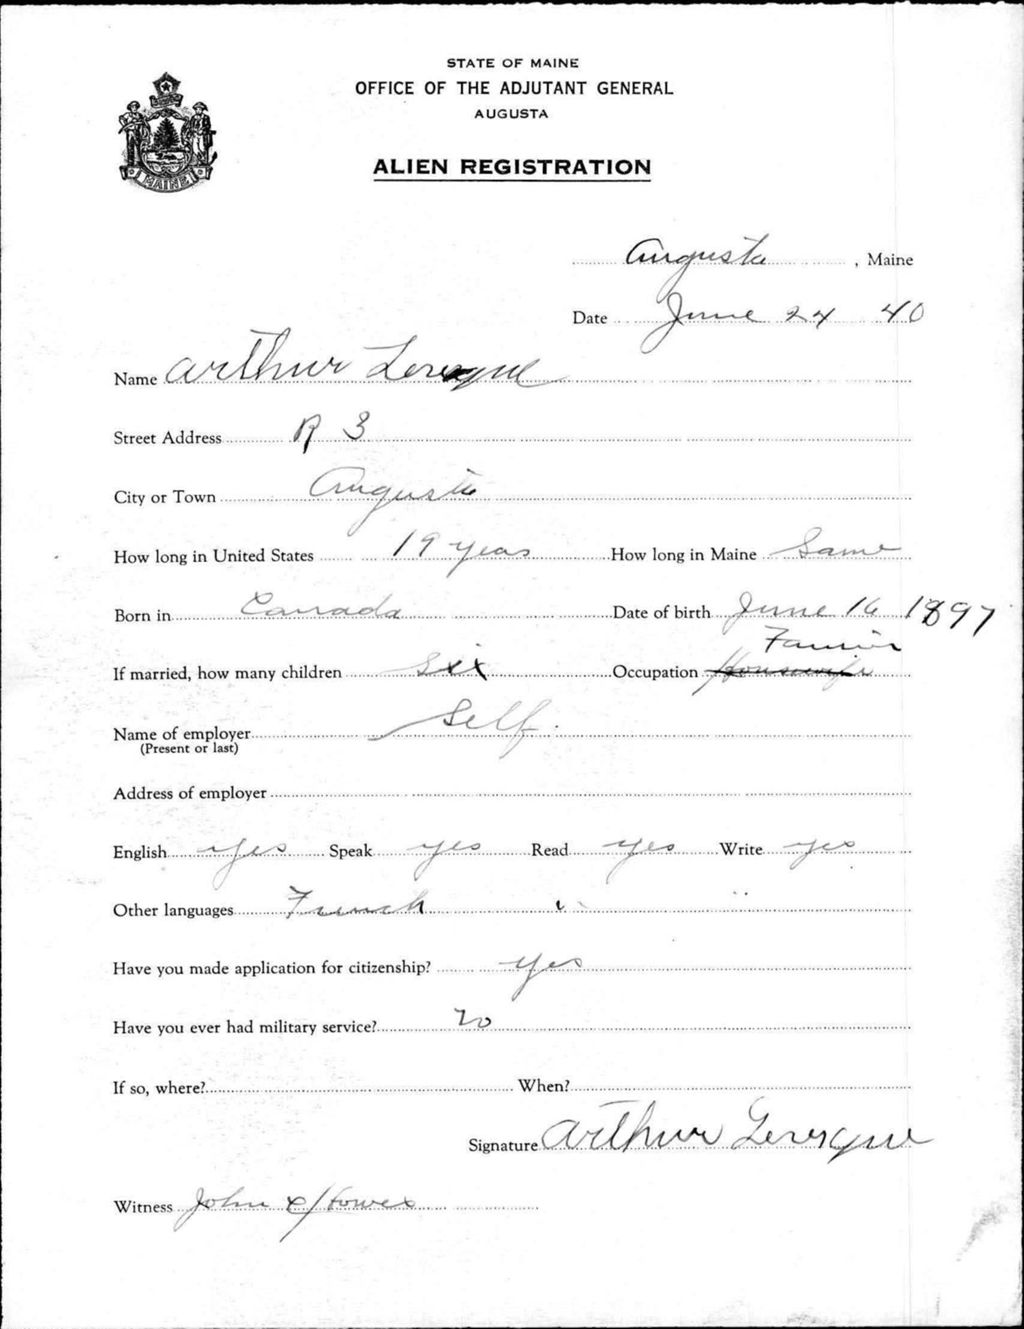 STATE OF MAINE
OFFICE OF THE ADJUTANT GENERAL
AUGUSTA
ALIEN REGISTRATION
MAINE
Augusta, Maine
Date June 24 40
Name Arthur Levesque
Street Address R 3
City or Town Augusta
How long in United States 19 years How long in Maine Same
Born in Canada Date of birth June 16 1897
Farmer
If married, how many children six Occupation Housewife
Name of employer Self
(Present or last)
Address of employer
English yes Speak yes Read yes Write yes
Other languages French
Have you made application for citizenship? yes
Have you ever had military service? no
If so, where? When?
Signature Arthur Levesque
Witness John Howes